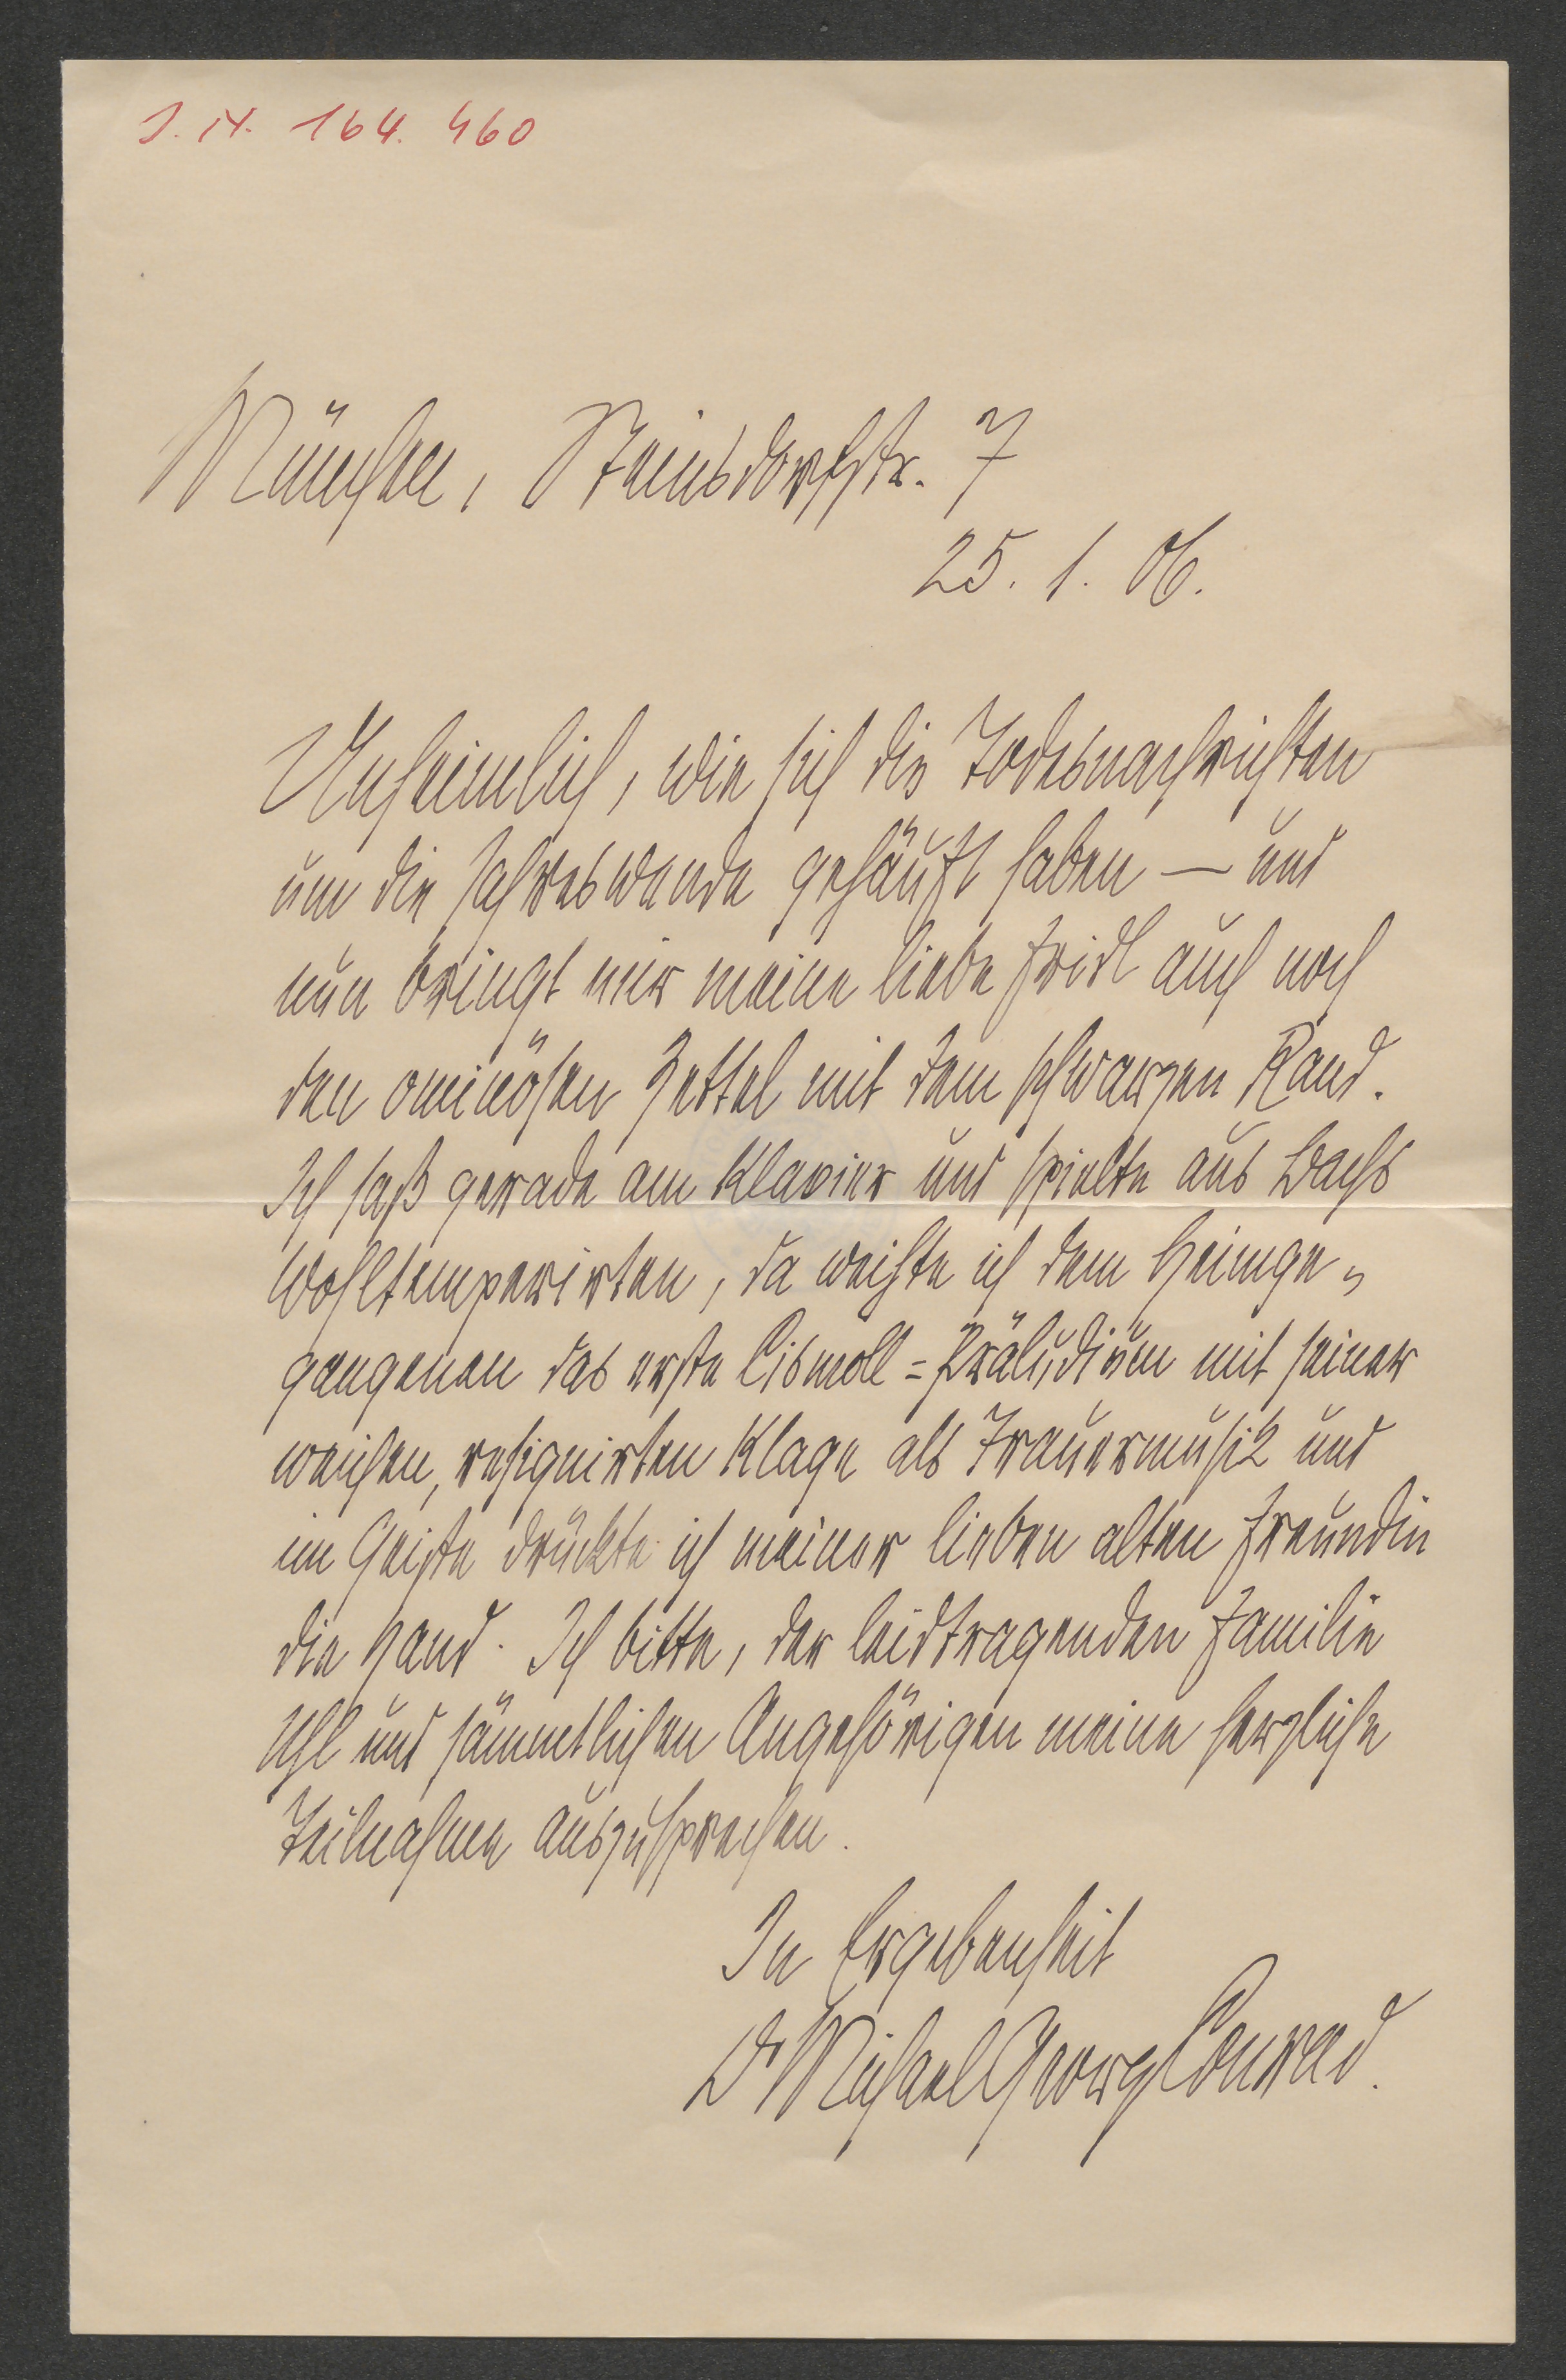 J. N. 164. 460
München, Steinsdorfstr. 7
25. 1. 06.
Unheimlich, wie sich die Todesnachrichten
um die Jahreswende gehäuft haben — und
nun bringt mir meine liebe Fridl auch noch
den ominösen Zettel mit dem schwarzen Rand.
Ich saß gerade am Klavier und spielte aus Bachs
Wohltemperirten, da weihte ich dem Heimge-
gangenen das erste Cismoll-Präludium mit seiner
weichen, resignirten Klage als Trauermusik und
im Geiste drückte ich meiner lieben alten Freundin
die Hand. Ich bitte, der leidtragenden Familie
Uhl und sämmtlichen Angehörigen meine herzliche
Teilnahme auszusprechen.
In Ergebenheit
Dr Michael Georg Conrad.